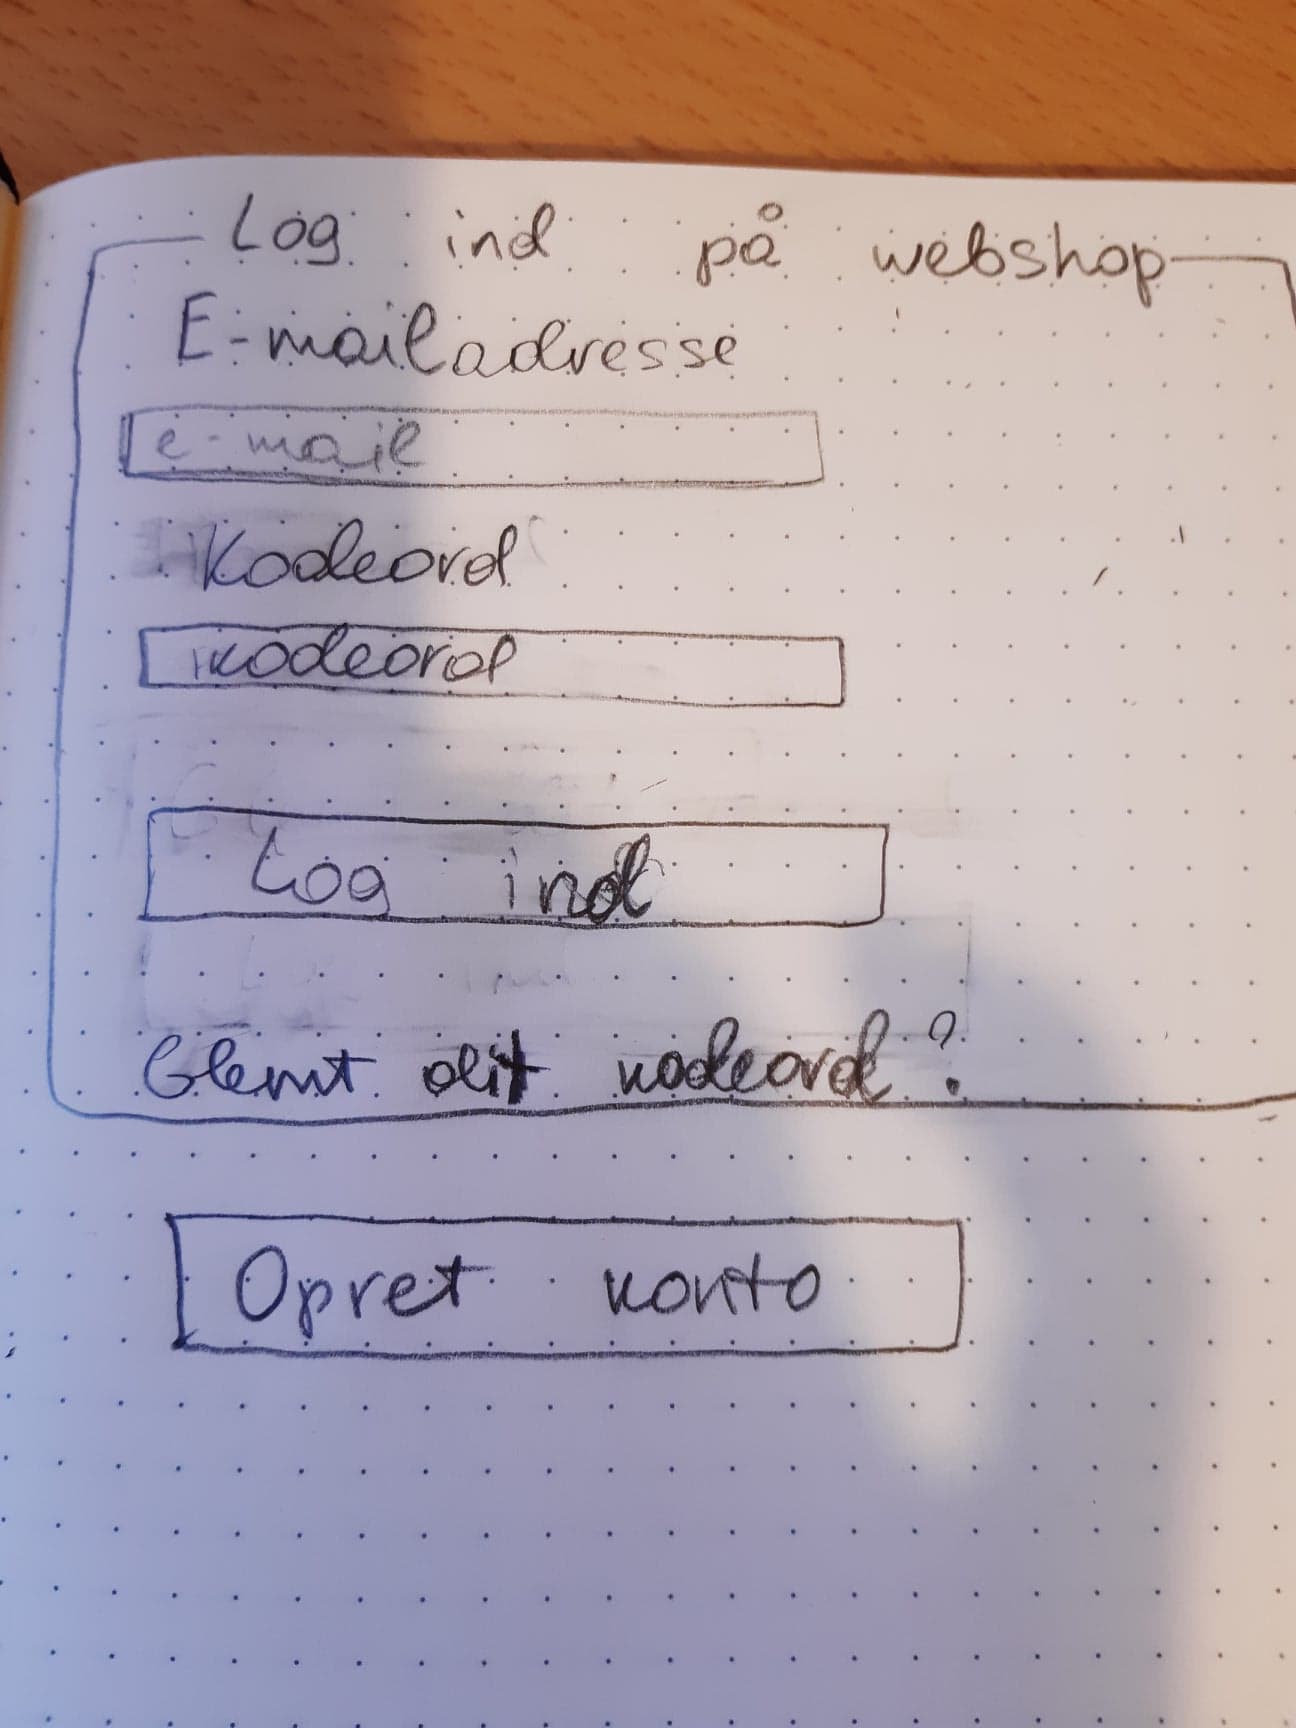 Log ind på webshop
E-mailadresse
e-mail
Kodeord
kodeord
Log ind
Glemt dit kodeord?
Opret konto